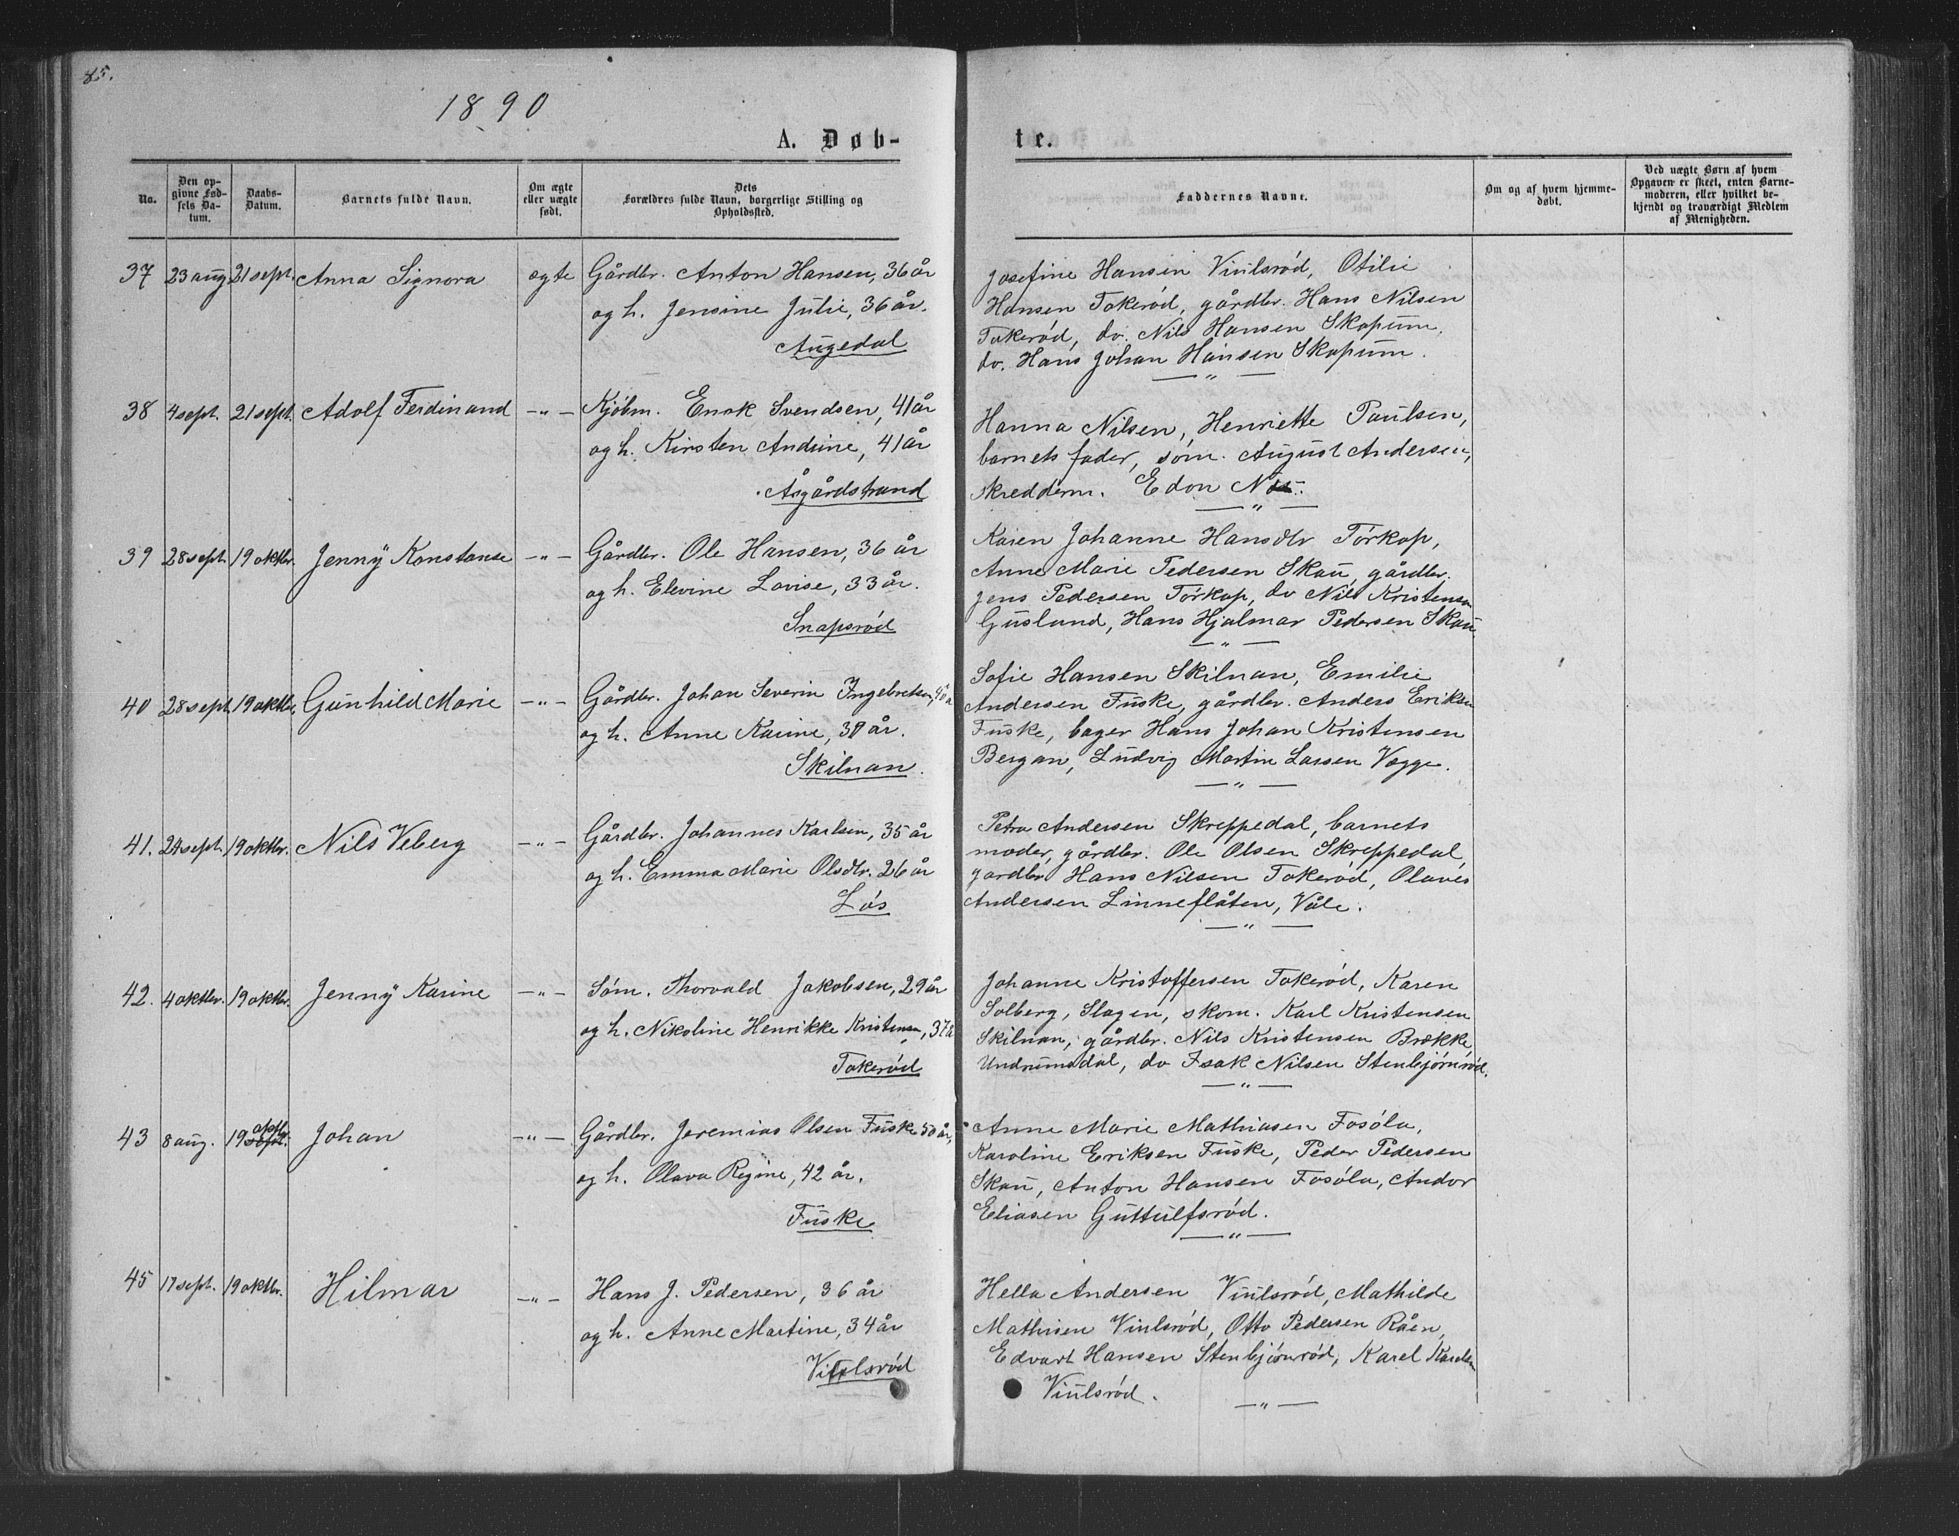 85.
1890
A. Døb-
te.
No.
Den op-
givne Fød-
sels Da-
tum.
Daabs-
Datum.
Barnets fulde Navn.
Om ægte
eller uægte
født.
Dets
Forældres fulde Navn, borgerlige Stilling og
Opholdssted.
Faddernes Navne.
Om og af hvem hjemme-
døbt.
Ved uægte Børn af hvem
Opgaven er skeet, enten Barne-
moderen, eller hvilket be-
kjendt og troværdigt Medlem
af Menigheden.
37 23 aug 21 sept. Anna Signora ægte Gårdbr. Anton Hansen, 36 år
og h. Jensine Julie, 36 år.
Augedal
Josefine Hansen Viulsrød, Otilie
Hansen Takerød, gårdbr. Hans Nilsen
Takerød, do. Nils Hansen Skopum.
do. Hans Johan Hansen Skopum.
— " —
38 4 sept. 21 sept. Adolf Ferdinand — " — Kjøbm. Enok Svendsen, 41 år
og h. Kirsten Andrine, 41 år
Åsgårdstrand
Hanna Nilsen, Henriette Paulsen,
barnets fader, søm. August Andersen,
skredderm. Edon
— " —
39 28 sept. 19 oktbr. Jenny Konstanse — " — Gårdbr. Ole Hansen, 36 år
og h. Elevine Lovise, 33 år.
Snapsrød
Karen Johanne Hansdtr Tørkop,
Anne Marie Pedersen Skau, gårdbr.
Jens Pedersen Tørkop, do Nils Kristensen
Guslund, Hans Hjalmar Pedersen Skau
— " —
40 28 sept 19 oktbr. Gunhild Marie — " — Gårdbr. Johan Severin Ingebretsen,
og h. Anne Karine, år.
Skilnan.
Sofie Hansen Skilnan, Emilie
Andersen Fuske, gårdbr. Anders Eriksen
Fuske, bager Hans Johan Kristensen
Bergan, Ludvig Martin Larsen Vægge.
— " —
41. 24 sept. 19 oktbr. Nils Veberg — " — Gårdbr. Johannes Karlsen, 35 år
og h. Emma Marie Olsdtr. 26 år
Løs
Petra Andersen Skreppedal, barnets
moder, gårdbr. Ole Olsen Skreppedal,
gårdbr Hans Nilsen Takerød, Olaves
Andersen Linneflåten, Våle.
— " —
42. 4 oktbr. 19 oktbr. Jenny Karine — " — Søm. Thorvald Jakobsen, 29 år
og h. Nikoline Henrikke Kristensen, 37 å
Takerød
Johanne Kristoffersen Takerød, Karen
Solberg, Slagen, skom. Karl Kristensen
Skilnan, gårdbr. Nils Kristensen Brække
Undrumsdal, do Isak Nilsen Stenbjørnrød.
— " —
43 8 aug. 19 Johan — " — Gårdbr. Jeremias Olsen Fuske 50 år,
og h. Olava Regine, 42 år.
Fuske
Anne Marie Mathiasen Fosøla,
Karoline Eriksen Fuske, Peder Pedersen
Skau, Anton Hansen Fosøla, Andor
Eliasen Guttulfsrød.
— " —
45 17 sept. 19 oktbr. Hilmar — " — Hans J. Pedersen, 36 år
og h. Anne Martine, 34 år
Viulsrød
Hella Andersen Viulsrød, Mathilde
Mathisen Viulsrød, Otto Pedersen Råen,
Edvart Hansen Stenbjørnrød, Karel Karlsen
Viulsrød.
— " —